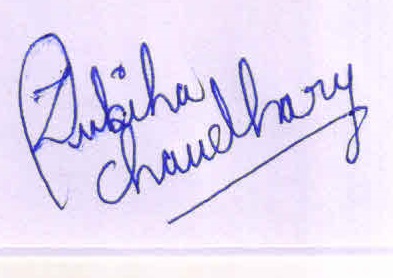 Zubiha
Chaudhary